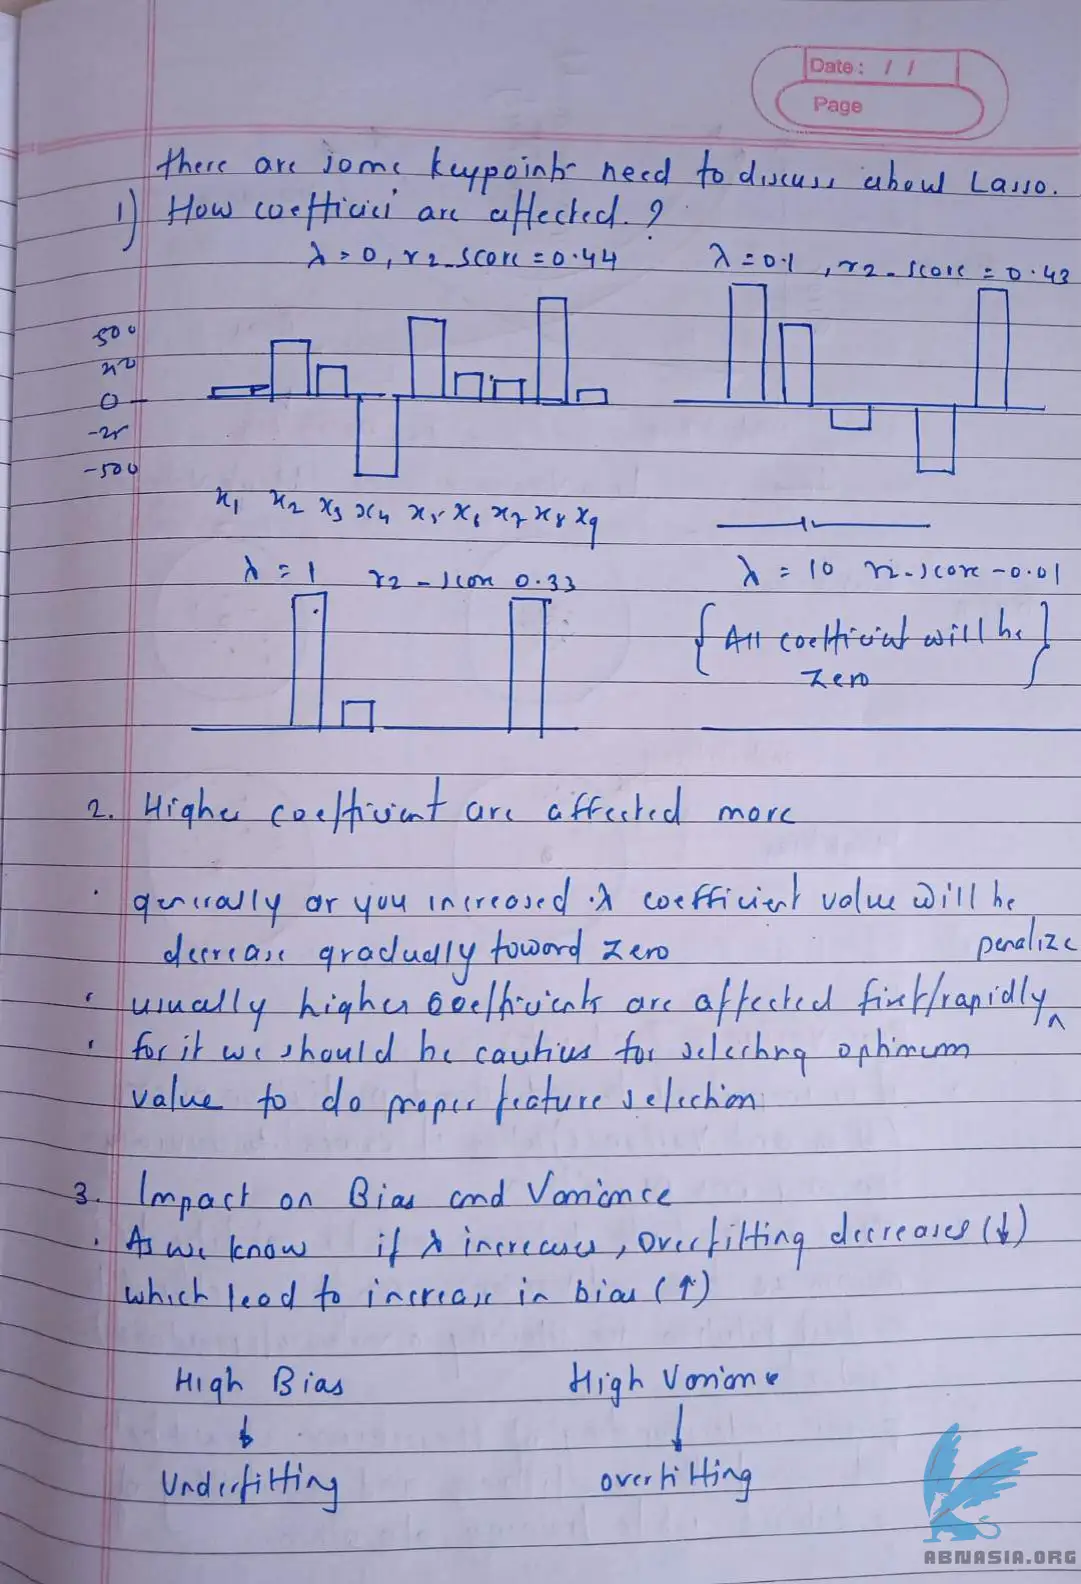 Date: / /
Page
there are some keypoints need to discuss about Lasso.
1) How coefficiei are affected.?
λ = 0, r2_score = 0.44
λ = 0.1, r2_score = 0.43
500
0
-25
-500
x1 x2 x3 x4 x5 x6 x7 x8 x9
λ = 1 r2-score 0.33
λ = 10 r2-score -0.01
{ All coefficient will be }
zero
2. Higher coefficient are affected more
generally as you increased λ coefficient value will be
decrease gradually toward zero
penalize
usually higher coefficients are affected first/rapidly ^
for it we should be cautius for selecting optimum
value to do proper feature selection
3. Impact on Bias and Variance
As we know if λ increases, overfitting decreases (↓)
which lead to increase in bias (↑)
High Bias
High Variance
↓
↓
Underfitting
overfitting
ABNASIA.ORG